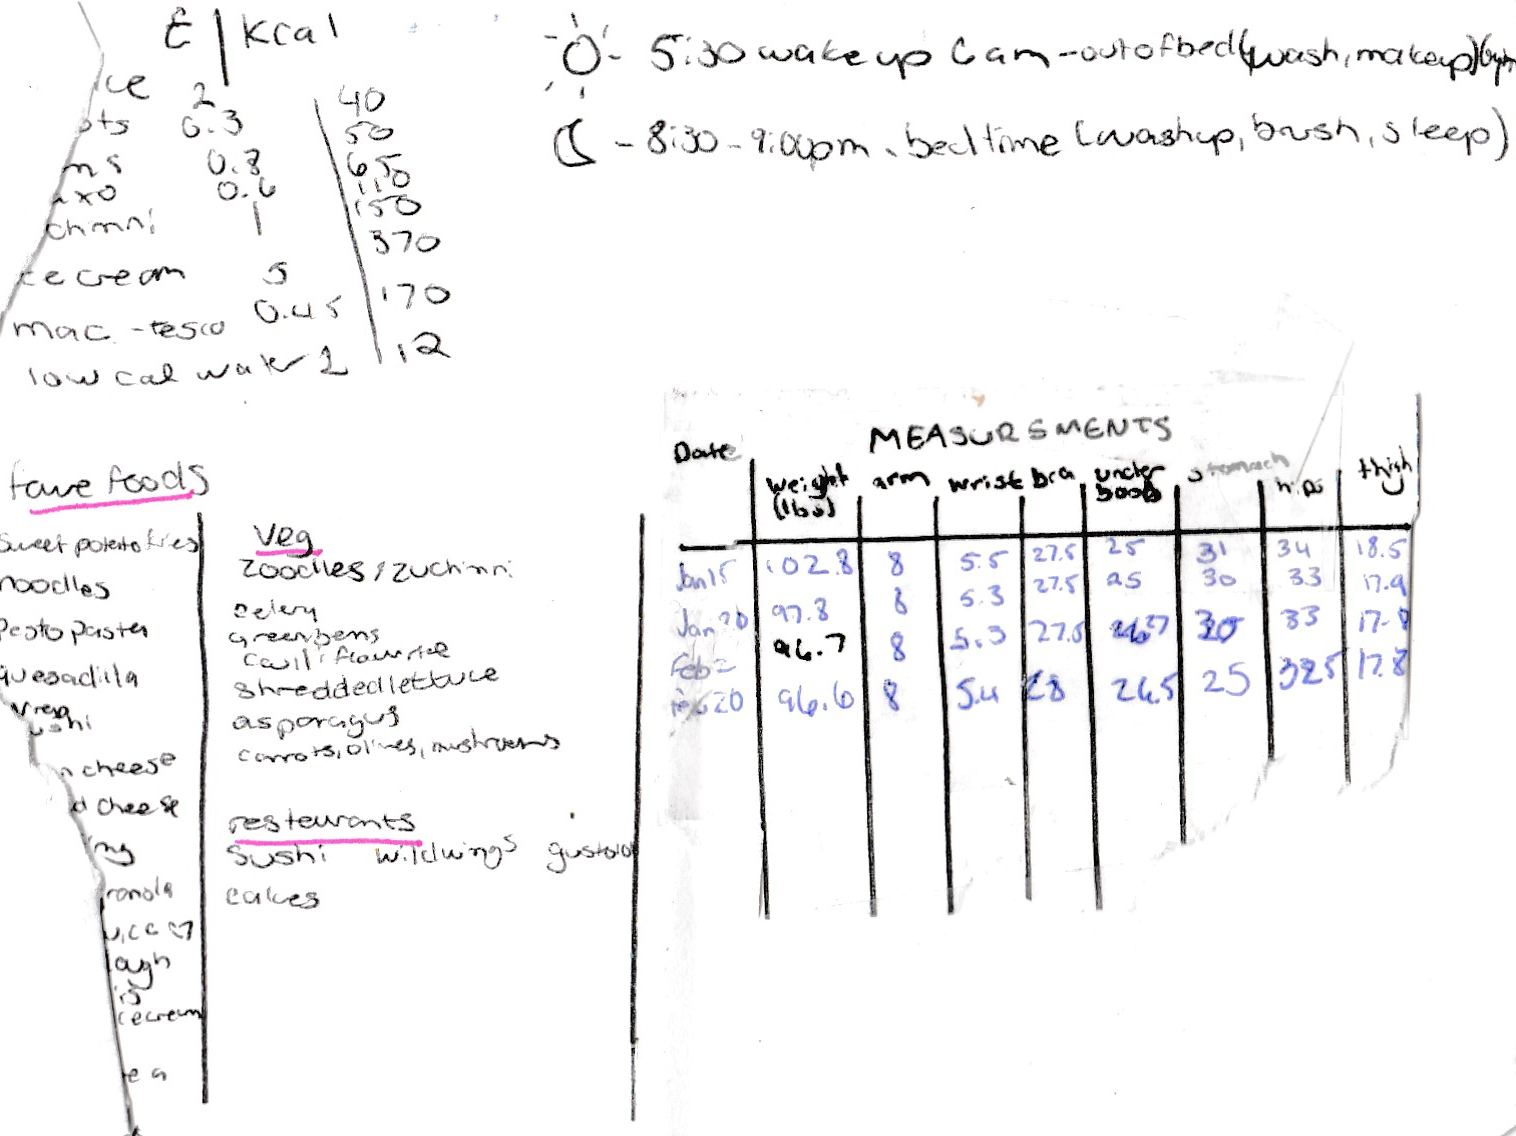 £ | Kcal
ice 2 40
ots 0.3 50
ms 0.8 65
axo 0.6 110
chinni 1 150
370
ce cream 5
mac - tesco 0.45 170
low cal water 1 12
- 5:30 wake up 6am - out of bed (wash, makeup)
- 8:30 - 9:00pm. bedtime (washup, brush, sleep)
fave foods
sweet potato fries
noodles
Pesto pasta
quesadilla
wrap
ushi
n cheese
d cheese
ny
ranola
agh
cecream
ea
Veg
zoodles / zuchinni
celery
greenbens
cauliflowrice
shredded lettuce
asparagus
carrots, olives, mushrooms
resteurants
Sushi wildwings
cakes
MEASURSMENTS
Date weight (lbs) arm wrist bra under boob stomach hips thigh
Jan 15 102.8 8 5.5 27.5 25 31 34 18.5
Jan 20 97.8 8 5.3 27.5 25 30 33 17.9
Feb 2 96.7 8 5.3 27.5 27 30 33 17.8
20 96.6 8 5.4 28 26.5 25 32.5 17.8